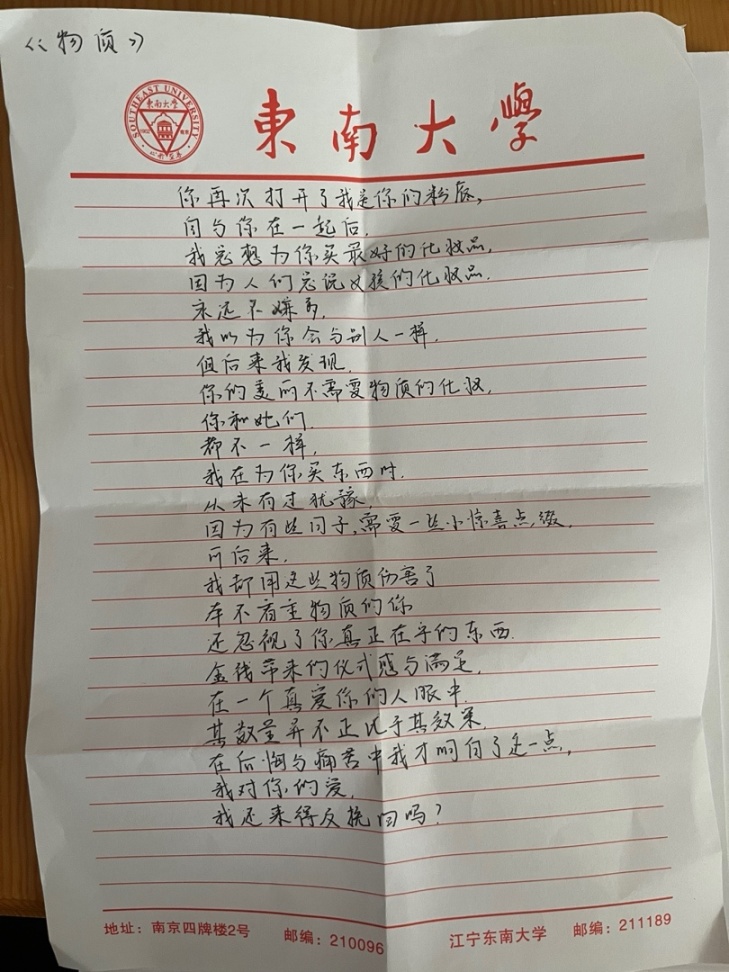 《物质》
SOUTHEAST UNIVERSITY
東南大學
1902
南京
東南大學
你再次打开了我送你的粉底,
自与你在一起后.
我总想为你买最好的化妆品,
因为人们总说女孩的化妆品.
永远不嫌多,
我以为你会与别人一样.
但后来我发现.
你的美丽不需要物质的化妆,
你和她们.
都不一样,
我在为你买东西时.
从未有过犹豫,
因为有些日子,需要一些小惊喜点缀.
可后来.
我却用这些物质伤害了
本不看重物质的你
还忽视了你真正在乎的东西.
金钱带来的仪式感与满足,
在一个真爱你的人眼中.
其数量并不正比于其效果
在后悔与痛苦中我才明白了这一点,
我对你的爱,
我还来得及挽回吗?
地址: 南京四牌楼2号 邮编: 210096 江宁东南大学 邮编: 211189